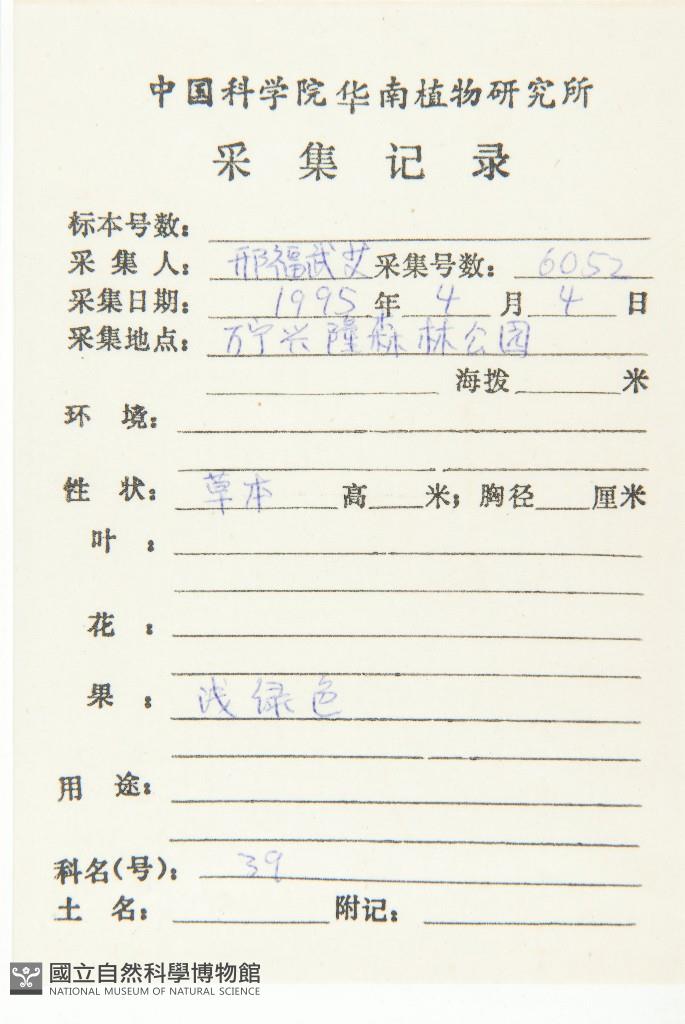 中国科学院华南植物研究所
采集记录
标本号数：
采集人：邢福武艾采集号数：6052
采集日期：1995年4月4日
采集地点：万宁兴隆森林公园
海拨 米
环境：
性状：草本 高 米；胸径 厘米
叶：
花：
果：浅绿色
用途：
科名(号)：39
土名： 附记：
國立自然科學博物館
NATIONAL MUSEUM OF NATURAL SCIENCE